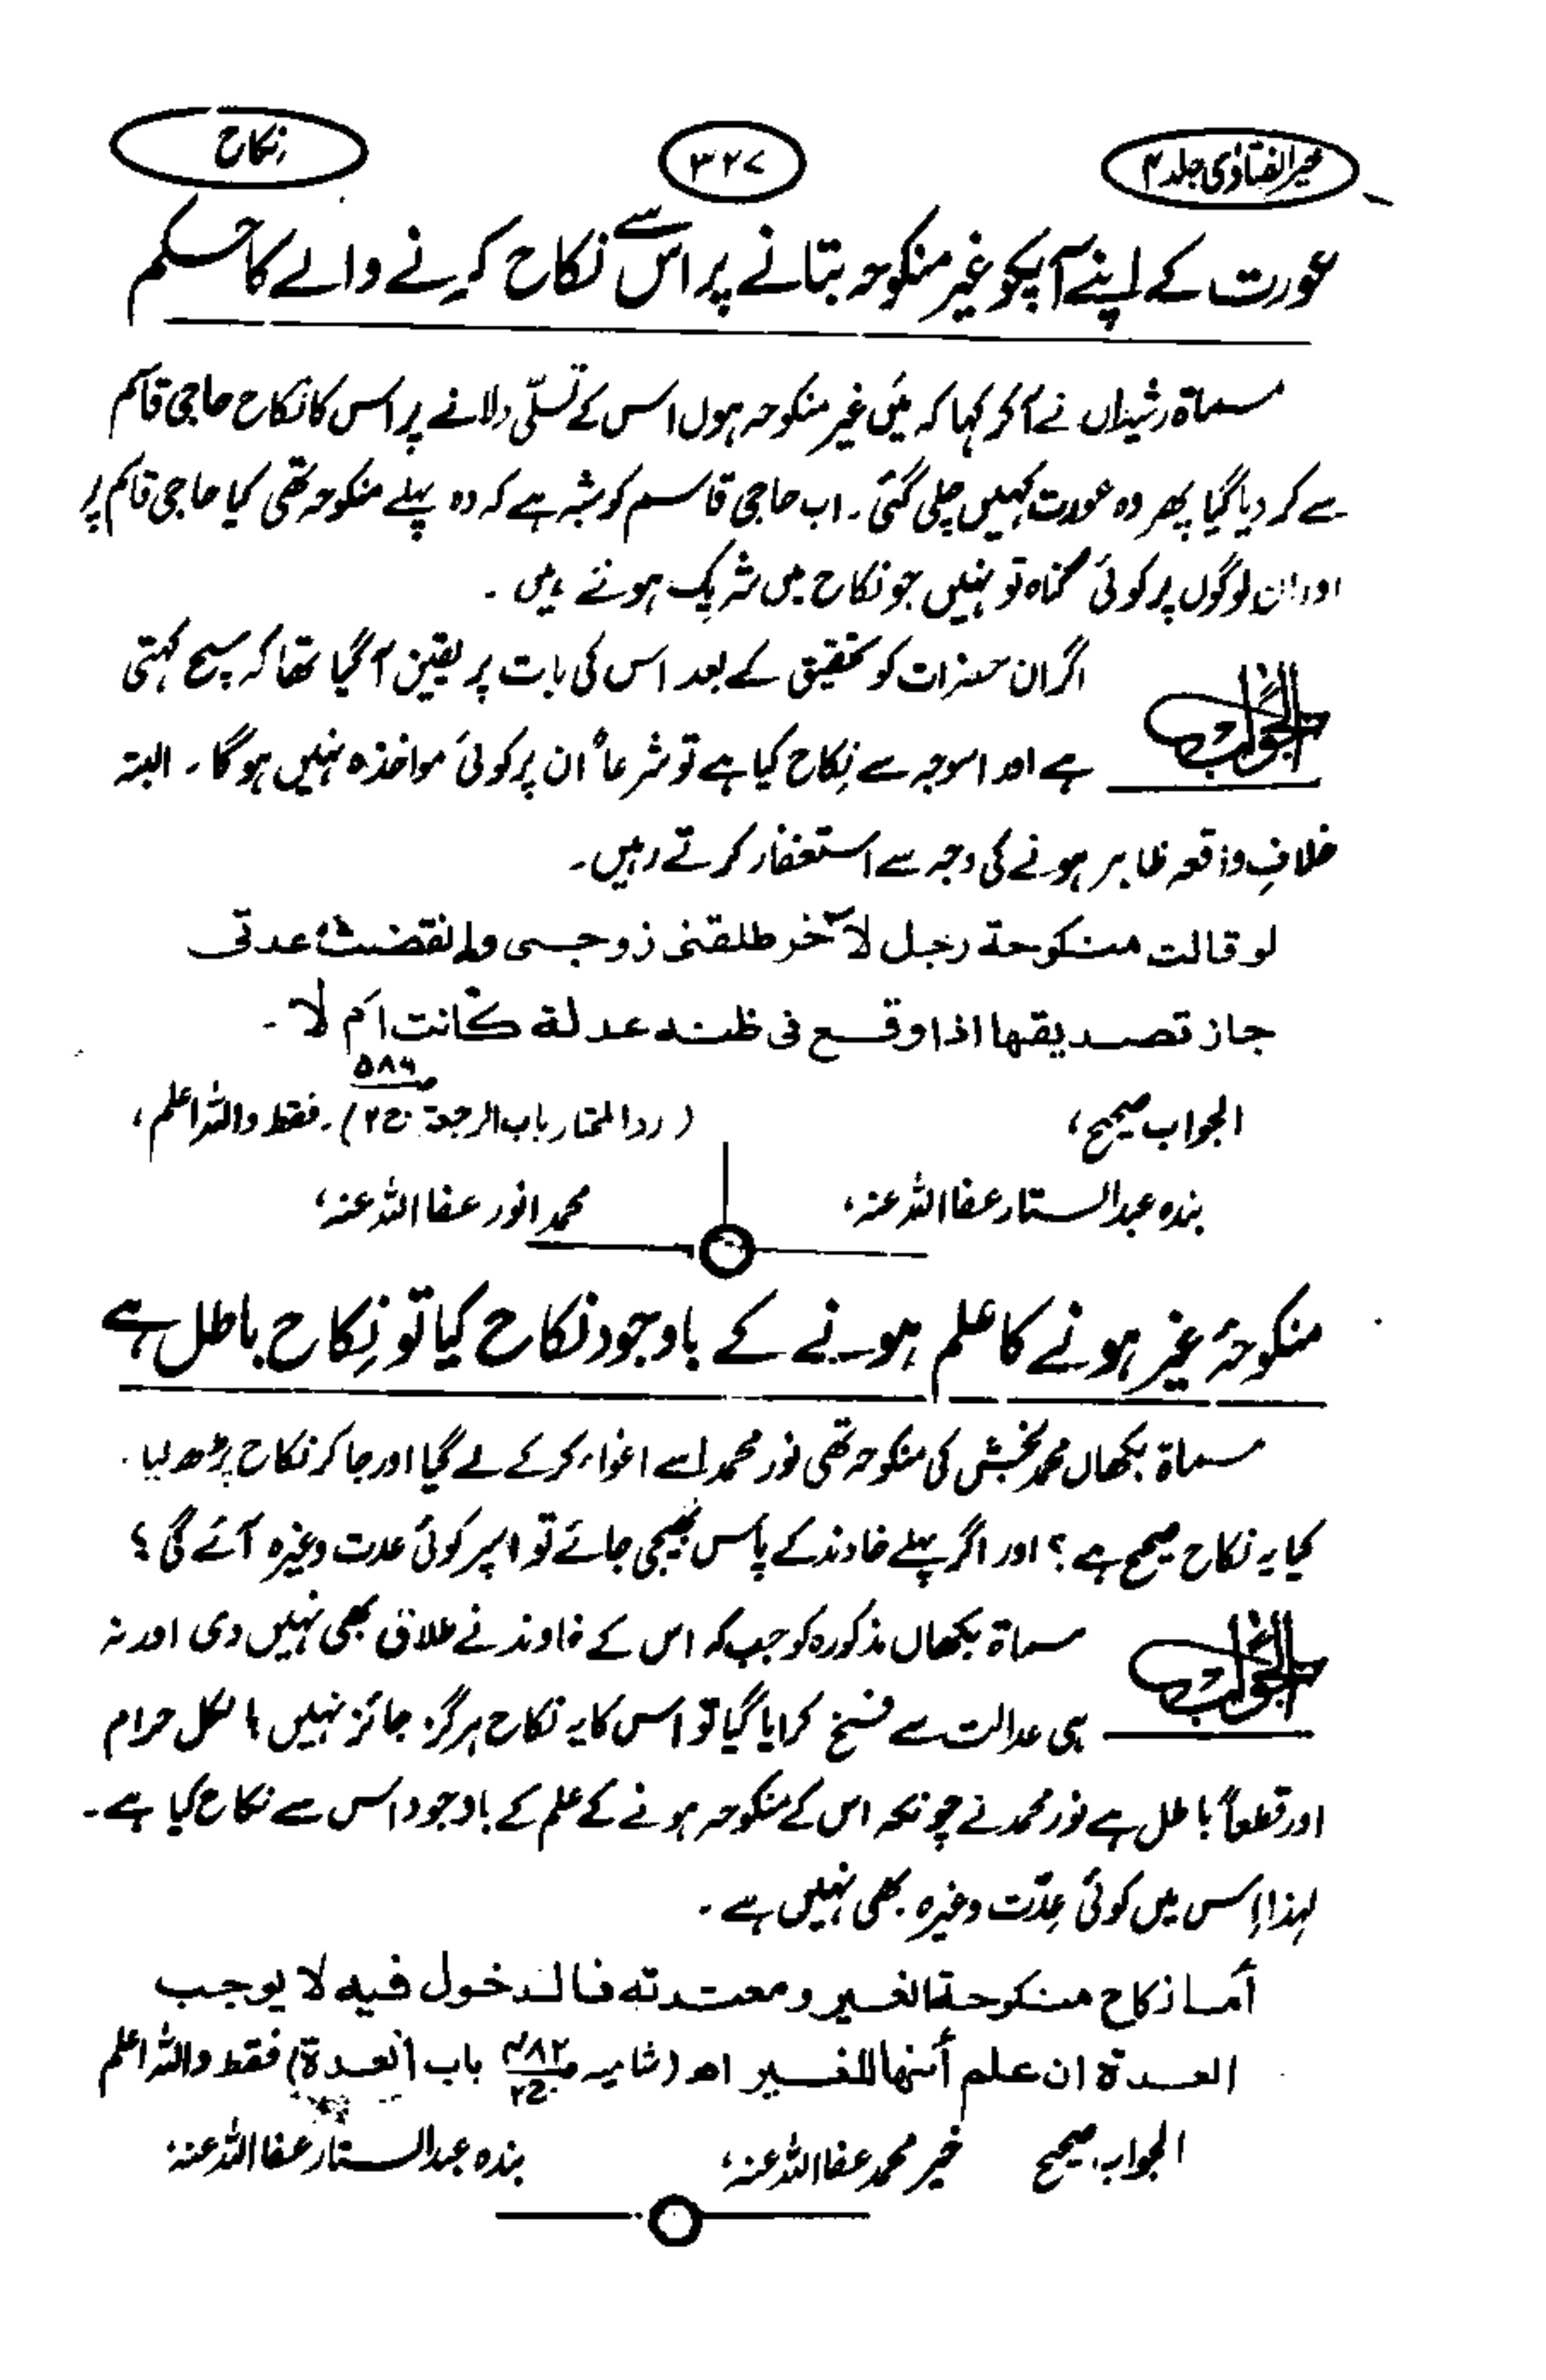 خیر الفتاوٰی جلد ۴
۳۲۷
نکاح
عورت کے اپنے آپکو غیر منکوحہ بتانے پر اس سے نکاح کرنے والے کا حکم
مسماۃ رشیداں نے آکر کہا کہ میَں غیر منکوحہ ہوں اس کے تسلّی دلانے پر اس کا نکاح حاجی قاسم
سے کر دیا گیا پھر وہ عورت کہیں چلی گئی۔ اب حاجی قاسم کو شبہ ہے کہ وہ پہلے منکوحہ تھی کیا حاجی قاسم پر
اور ان لوگوں پر کوئی گناہ تو نہیں جو نکاح میں شریک ہوئے ہیں۔
الجواب
اگر ان حضرات کو تحقیق کے بعد اس کی بات پر یقین آ گیا تھا کہ سچ کہتی
ہے اور اسوجہ سے نِکاح کیا ہے تو شرعاً ان پر کوئی مواخذہ نہیں ہوگا۔ البتہ
خلافِ واقعہ ظاہر ہونے کی وجہ سے استغفار کرتے رہیں۔
لو قالت منكوحة رجل لآخر طلقنی زوجی وانقضت عدتی
جاز تصديقها اذا وقع فی ظنه عدلة كانت ام لا۔
(رد المختار باب الرجعة ج۲ ص ۵۸۶)۔ فقط واللہ اعلم،
الجواب صحیح،
بندہ عبدالستار عفا اللہ عنہ،
محمد انور عفا اللہ عنہ،
منکوحۂ غیر ہونے کا علم ہونے کے باوجود نکاح کیا تو نِکاح باطل ہے
مسماۃ بکھاں محمد بخش کی منکوحہ تھی نور محمد اسے اغواء کر کے لے گیا اور جا کر نکاح پڑھ لیا۔
کیا یہ نکاح صحیح ہے؟ اور اگر پہلے خاوند کے پاس بھیجی جائے تو اسپر کوئی عدت وغیرہ آئے گی؟
الجواب
مسماۃ بکھاں مذکورہ کو جب کہ اس کے خاوند نے طلاق بھی نہیں دی اور نہ
ہی عدالت سے فسخ کرایا گیا تو اس کا یہ نکاح ہرگز جائز نہیں بالکل حرام
اور قطعاً باطل ہے نور محمد نے چونکہ اس کے منکوحہ ہونے کے علم کے باوجود اس سے نکاح کیا ہے۔
لہذا اِس میں کوئی عِدّت وغیرہ بھی نہیں ہے۔
أما نكاح منكوحة الغير ومعتدته فالدخول فيه لا يوجب
العدة ان علم أنها للغير اھ (شامیہ ص ۴۸۲ ج۲ باب العدة) فقط واللہ اعلم
الجواب صحیح
خیر محمد عفا اللہ عنہ،
بندہ عبدالستار عفا اللہ عنہ،